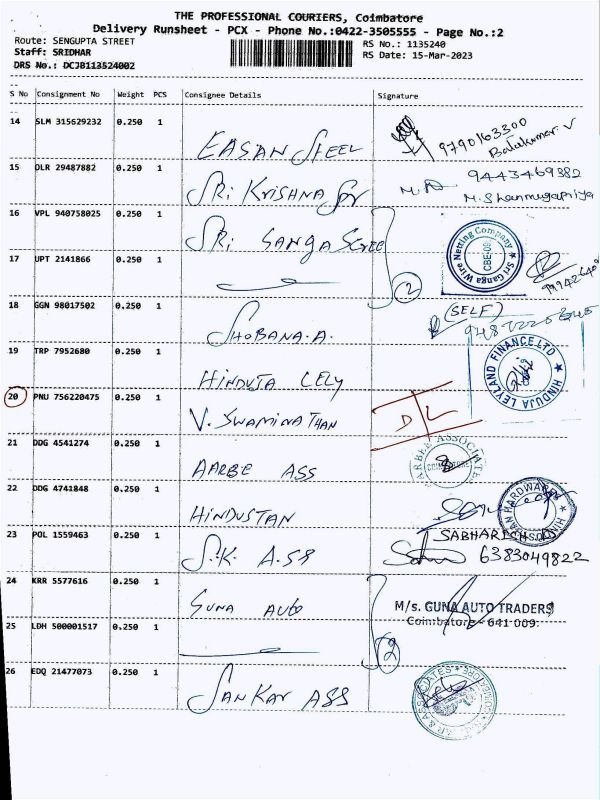 THE PROFESSIONAL COURIERS, Coimbatore
Delivery Runsheet - PCX - Phone No.:0422-3505555 - Page No.:2
Route: SENGUPTA STREET
RS No.: 1135240
Staff: SRIDHAR
RS Date: 15-Mar-2023
DRS No.: DCJB113524002
S No Consignment No Weight PCS Consignee Details Signature
14 SLM 315629232 0.250 1 EASAN STEEL 9790163300
Balakumar. V
15 DLR 29487882 0.250 1 SRi KRISHNA 9443469382
M. Shanmugapriya
16 VPL 940758025 0.250 1 SRi GANGA SCREE
Sri Ganga Wire Netting Company CBE-09
17 UPT 2141866 0.250 1 2
18 GGN 98017502 0.250 1 SHOBANA.A. (SELF)
19 TRP 7952680 0.250 1 HINDUJA LELY
HINDUJA LEYLAND FINANCE LTD
20 PNU 756220475 0.250 1 V. SWAMINATHAN D/L
21 DDG 4541274 0.250 1 AARBE ASS
22 DDG 4741848 0.250 1 HINDUSTAN
23 POL 1559463 0.250 1 S.K. A.SS 6383049822
24 KRR 5577616 0.250 1 GUNA AUTO M/s. GUNA AUTO TRADERS
Coimbatore - 641 009.
25 LDH 500001517 0.250 1 2
26 EDQ 21477073 0.250 1 SANKAR ASS